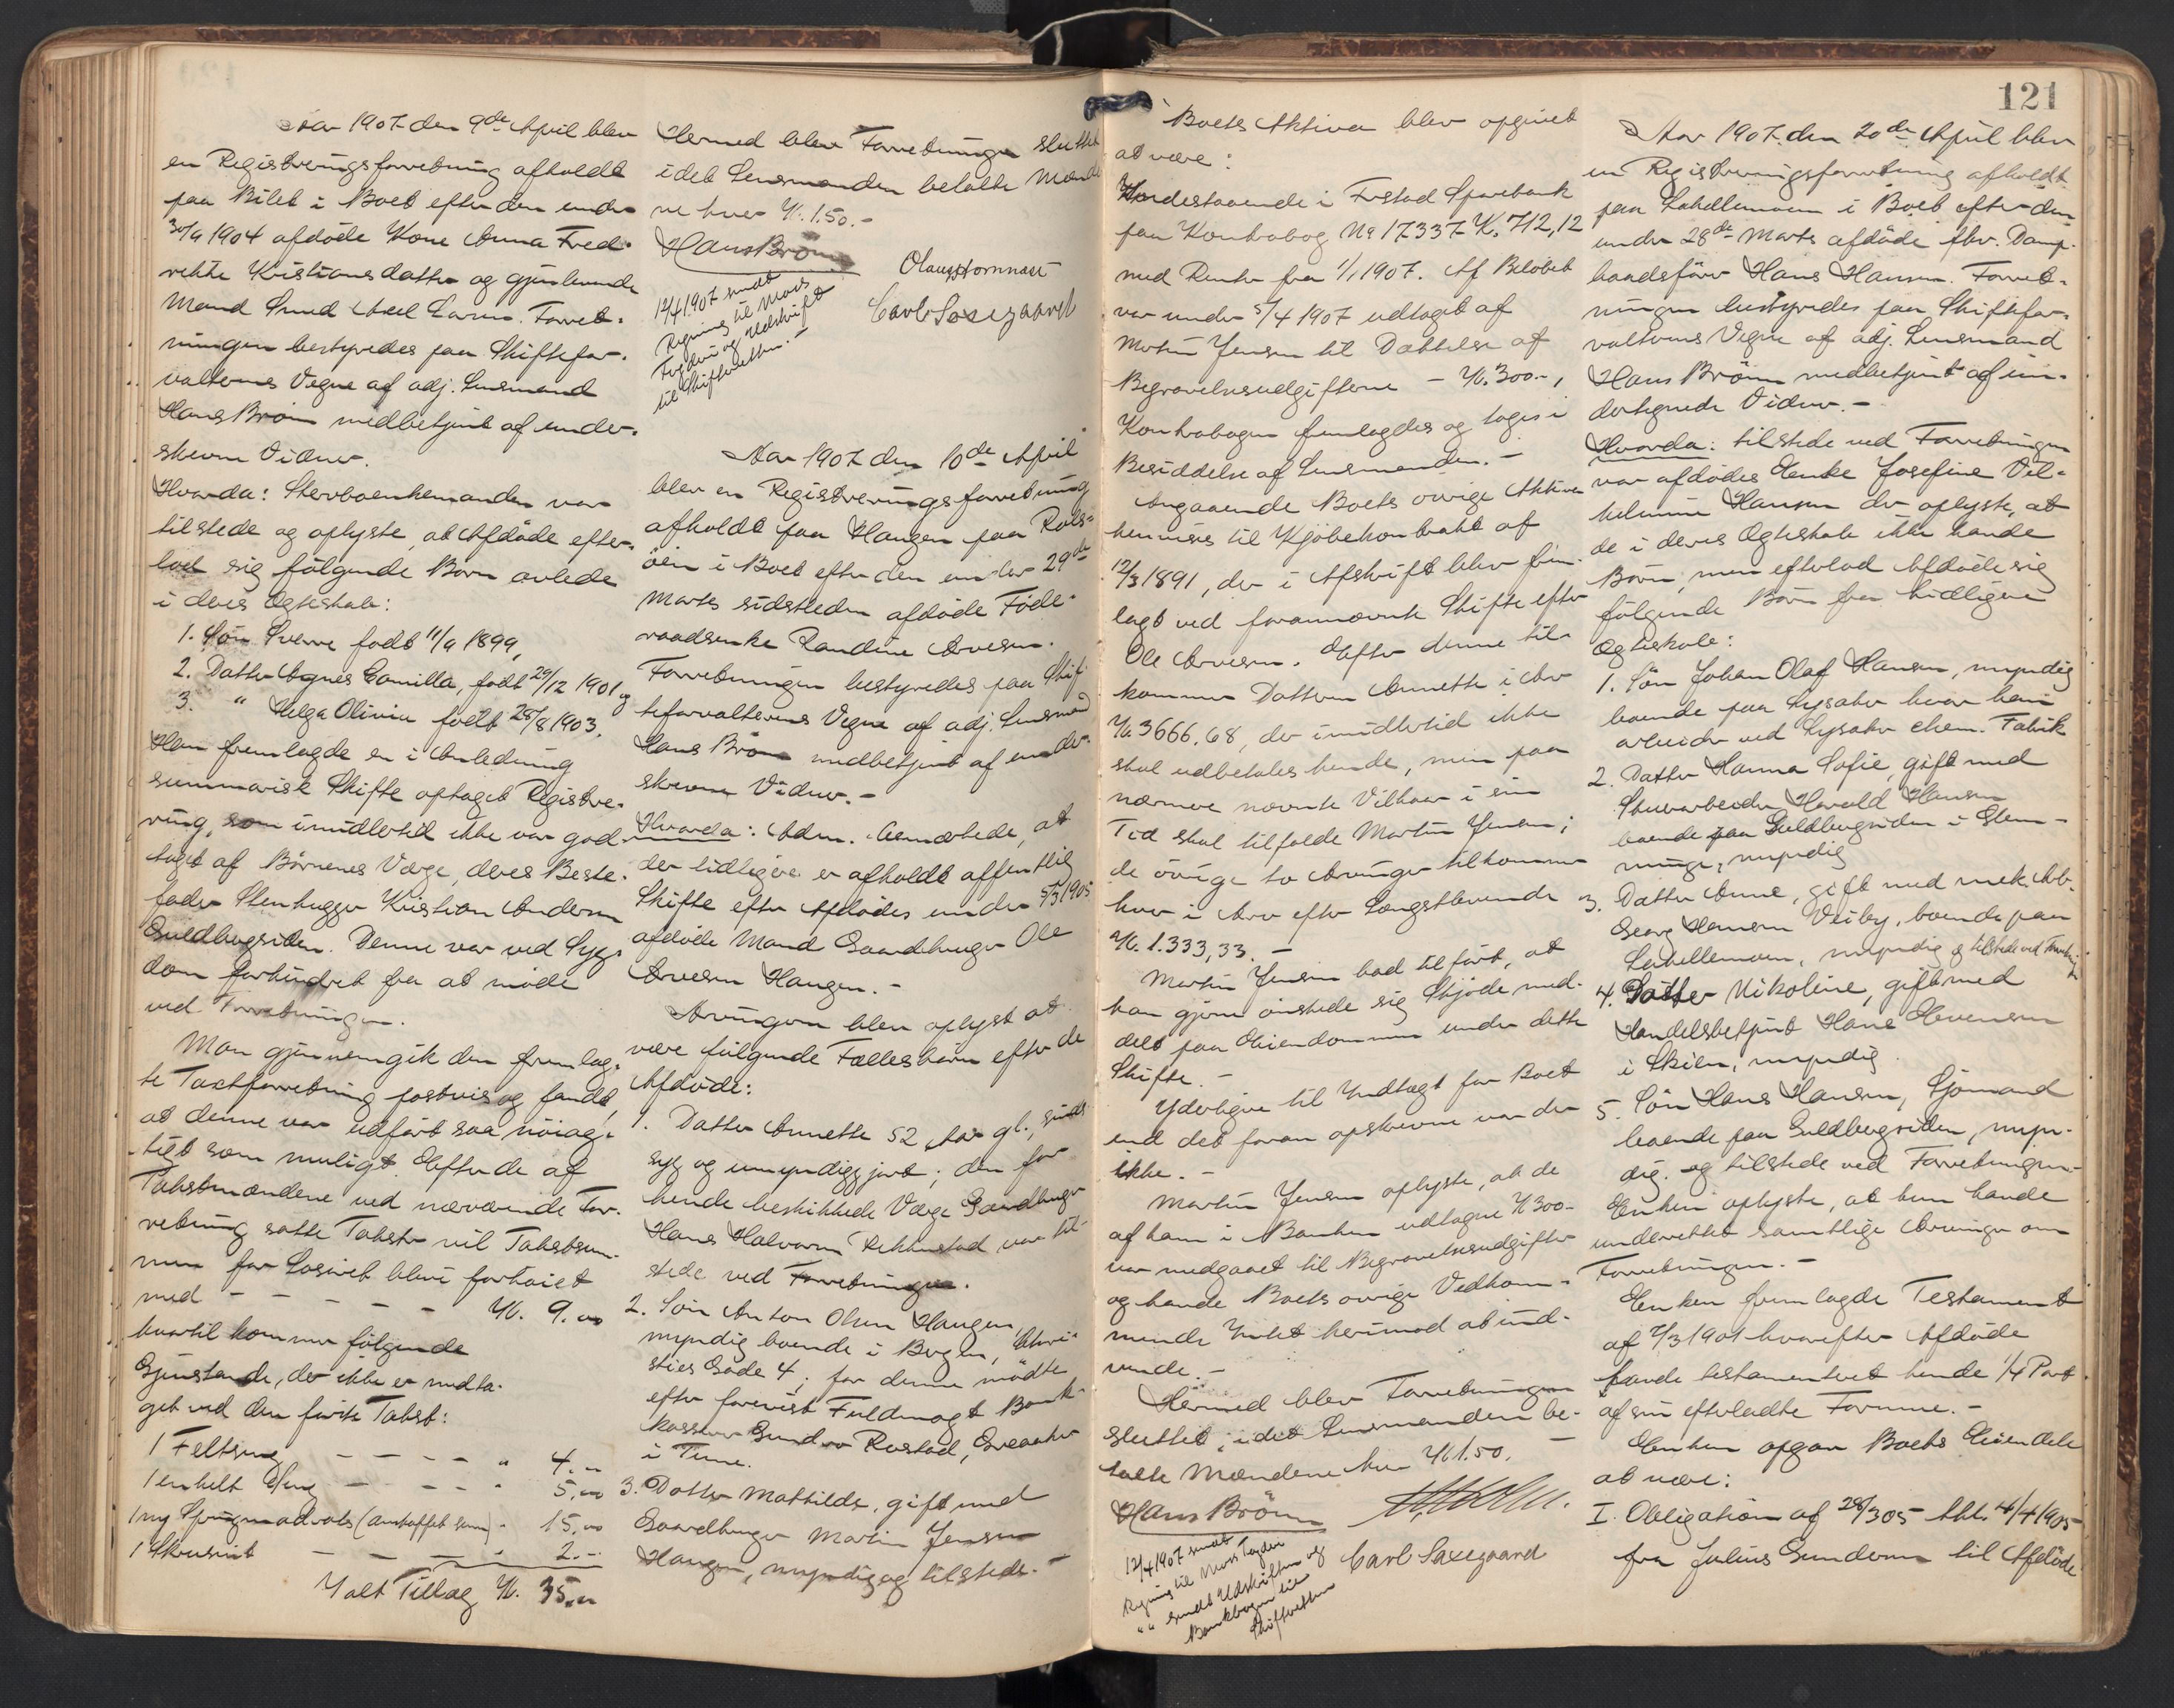 Aar 1907 den 9de April blev
en Registreringsforretning afholdt
paa Bilet i Boet efter den under
30/9 1904 afdøde Kone Anna Fred-
rikke Kristiansdatter og gjenlevende
Mand Smed Axel Larsen. Forret-
ningen bestyredes paa Skiftefor-
valterens Vegne af adj. Lensmand
Hans Brönn medbetjent af under-
skrevne Vidner.
Hvorda: Stervboenkemanden var
tilstede og oplyste, at Afdøde efter-
lod sig følgende Børn avlede
i deres Ægteskab:
1. Søn Sverre født 11/9 1899,
2. Datter Agnes Camilla, født 29/12 1901 og
3. " Helga Olivia født 28/8 1903.
Han fremlagde en i Anledning
summarisk Skifte optaget Registre-
ring, som imidlertid ikke var god-
taget af Børnenes Værge, deres Beste-
fader Stenhugger Kristian Andersen
Guldbergsiden. Denne var ved Syg-
dom forhindret fra at møde
ved Forretningen.
Man gjennemgik den fremlag-
te Taxtforretning postvis og fandt,
at denne var udført saa nøiag-
tigt som muligt. Efter de af
Takstmændene ved nærværende For-
retning satte Takster vil Takstsum-
men for Løsøret blive forhøiet
med - - - - - K. 9.00
hvortil kommer følgende
Gjenstande, der ikke er medta-
get ved den første Takst:
1 Feltseng - - - - " 4.00
1 enkelt Seng - - - - " 5.00
1 ny Springmadrats (anskaffet senere) " 15.00
1 Skrusnit - - - - 2.-
Ialt Tillæg K. 35.00
Hermed blev Forretningen sluttet
idet Lensmanden betalte Mænde
ne hver K. 1.50.-
Hans Brönn
Olaus Hornnæs
Carl Saxegaard
12/4 1907 sendt
Regning til Moss
Fogderi og Udskrift
til Skifteretten.-
Aar 1907 den 10de April
blev en Registreringsforretning
afholdt paa Haugen paa Rols-
øen i Boet efter den under 29de
Marts sidstleden afdøde Føde-
raadsenke Randine Arvesen.
Forretningen bestyredes paa Skif-
teforvalterens Vegne af adj. Lensmand
Hans Brönn medbetjent af under-
skrevne Vidner.-
Hvorda: Adm. bemærkede, at
der tidligere er afholdt offentlig
Skifte efter Afdødes under 5/3 1905
afdøde Mand Gaardbruger Ole
Arvesen Haugen.-
Arvingerne blev oplyst at
være følgende Fællesbørn efter de
Afdøde:
1. Datter Annette 52 Aar gl., sinds-
syg og umyndiggjort; den for
hende beskikkede Værge Gaardbruger
Hans Halvorsen Rekkustad var til-
stede ved Forretningen.
2. Søn Anton Olsen Haugen,
myndig boende i Bergen, Christies Gade 4; for denne mødte
efter forevist Fuldmagt Bank-
kasserer Gunder Rostad, Greaaker
i Tune.
3. Datter Mathilde, gift med
Gaardbruger Martin Jensen
Haugen, myndig og tilstede.-
121
Boets Aktiver blev opgivet
at være:
Indestaaende i Fr.stad Sparebank
paa Kontrabog No 17337 K. 712,12
med Renter fra 1/1 1907. Af Beløbet
var under 5/4 1907 udtaget af
Martin Jensen til Dækkelse af
Begravelsesudgifterne - K. 300.-,
Kontrabogen fremlagdes og toges i
Besiddelse af Lensmanden.-
Angaaende Boets øvrige Aktiver
henvises til Kjøbekontrakt af
12/3 1891, der i Afskrift blev frem-
lagt ved forannævnte Skifte efter
Ole Arvesen. Efter denne til-
kommer Datteren Annette i Arv
K. 3666.68, der imidlertid ikke
skal udbetales hende, men paa
nærmere nævnte Vilkaar i sin
Tid skal tilfalde Martin Jensen;
de øvrige to Arvinger tilkommer
hver i Arv efter Længstlevende
K. 1.333,33.-
Martin Jensen bad tilført, at
han gjerne ønskede sig Skjøde med-
delt paa Eiendommen under dette
Skifte.-
Yderligere til Indtægt for Boet
end det foran opskrevne var der
ikke.-
Martin Jensen oplyste, at de
af ham i Banken udtagne K 300.-
var medgaaet til Begravelsesudgifter
og havde Boets øvrige Vedkom-
mende Intet herimod at ind-
vende.-
Hermed blev Forretningen
sluttet, idet Lensmanden be-
talte Mændene hver K 1.50.-
Hans Brönn
Carl Saxegaard
12/4 1907 sendt
Regning til Moss Fogderi
" " sendt Udskriften og
Bankbogen til
Skifteretten
Aar 1907 den 20de April blev
en Registreringsforretning afholdt
paa Labellemoen i Boet efter den
under 28de Marts afdøde fhv. Damp-
baadsfører Hans Hansen. Forret-
ningen bestyredes paa Skiftefor-
valterens Vegne af adj. Lensmand
Hans Brönn medbetjent af un-
dertegnede Vidner.-
Hvorda: tilstede ved Forretningen
var afdødes Enke Josefine Vil-
helmine Hansen der oplyste, at
de i deres Ægteskab ikke havde
Børn, men efterlod Afdøde sig
følgende Børn fra tidligere
Ægteskab:
1. Søn Johan Olaf Hansen, myndig
boende paa Lysaker hvor han
arbeider ved Lysaker chem. Fabrik
2. Datter Hanna Sofie, gift med
Stuerarbeider Harald Hansen
boende paa Guldbergsiden i Glem-
minge, myndig
3. Datter Anne, gift med mek. Arb.
Georg Hansen Veiby, boende paa
Labellemoen, myndig & tilstede ved Forretningen
4. Datter Nikoline, gift med
Handelsbetjent Hans Evensen
i Skien, myndig.
5. Søn Hans Hansen, Sjømand
boende paa Guldbergsiden, myn-
dig. og tilstede ved Forretningen.-
Enken oplyste, at hun havde
underrettet samtlige Arvinger om
Forretningen.-
Enken fremlagde Testament
af 7/3 1901 hvorefter Afdøde
havde testamenteret hende 1/4 Part
af sin efterladte Formue.-
Enken opgav Boets Eiendele
at være:
I. Obligation af 28/3 05 thl. 4/4 1905
fra Julius Gundersen til Afdøde